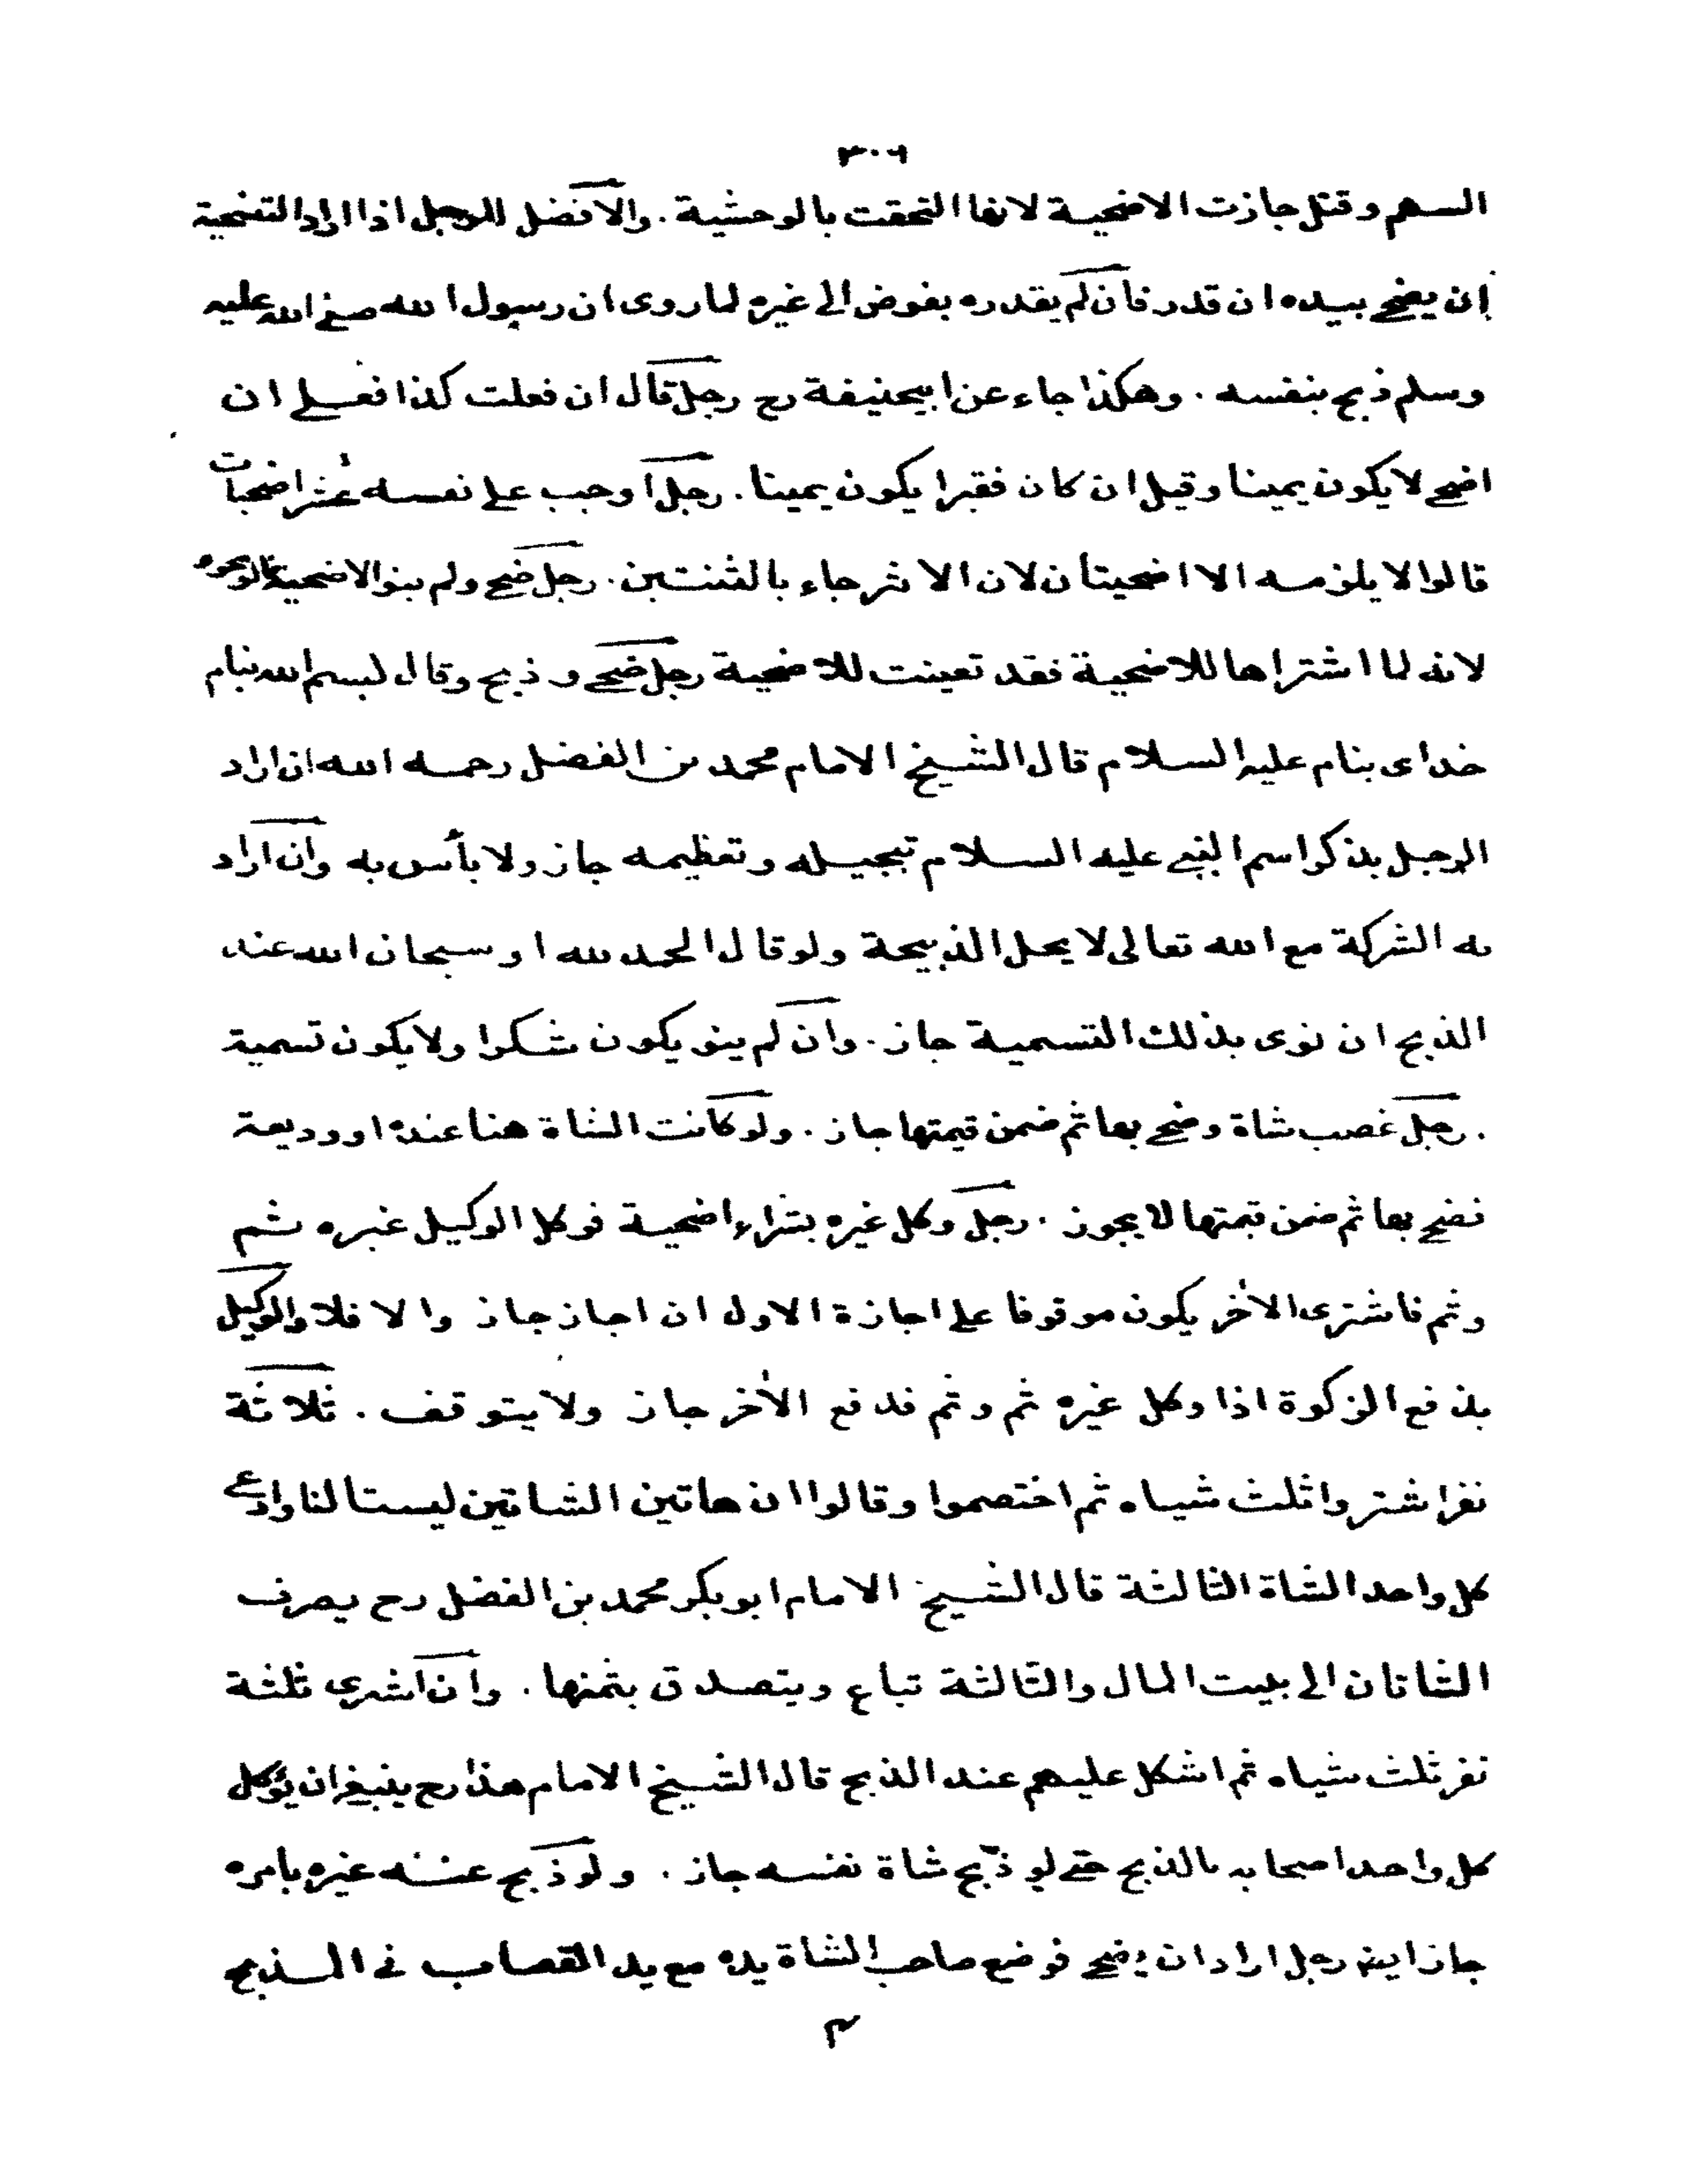 ٣٠٦
السهم وقتل جازت الاضحية لانها التحقت بالوحشية . والافضل للرجل اذا اراد التضحية
ان يضحى بيده ان قدر فان لم يقدر ه يفوض الى غيره لما روى ان رسول الله صلى الله عليه
وسلم ذبح بنفسه . وهكذا جاء عن ابيحنيفة رح رجل قال ان فعلت كذا فعلى ان
اضحى لا يكون يمينا وقيل ان كان فقيرا يكون يمينا . رجل اوجب على نفسه عشر اضحيات
قالوا لا يلزمه الا اضحيتان لان الاثر جاء بالثنتين . رجل ضحى ولم ينو الاضحية قالوا يجوز
لانه لما اشتراها للاضحية فقد تعينت للاضحية رجل ضحى و ذبح وقال لبسم الله بنام
خداى بنام عليه السلام قال الشيخ الامام محمد بن الفضل رحمه الله ان اراد
الرجل بذكر اسم النبى عليه السلام تبجيله وتعظيمه جاز ولا بأس به وان اراد
به الشركة مع الله تعالى لا يحل الذبيحة ولو قال الحمد لله او سبحان الله عند
الذبح ان نوى بذلك التسمية جاز . وان لم ينو يكون شكرا ولا يكون تسمية
. رجل غصب شاة وضحى بها ثم ضمن قيمتها جاز . ولو كانت الشاة هنا عنده او وديعة
فضحى بها ثم ضمن قيمتها لا يجوز . رجل وكل غيره بشراء اضحية فوكل الوكيل غيره ثم
وثم فاشترى الاٰخر يكون موقوفا على اجازة الاول ان اجاز جاز والا فلا والوكيل
بدفع الزكوة اذا وكل غيره ثم وثم فدفع الاٰخر جاز ولا يتوقف . ثلاثة
نفر اشتروا ثلث شياه ثم اختصموا وقالوا ان هاتين الشاتين ليستا لنا وادعى
كل واحد الشاة الثالثة قال الشيخ الامام ابو بكر محمد بن الفضل رح يصرف
الشاتان الى بيت المال والثالثة تباع ويتصدق بثمنها . وان اشرى ثلثة
نفر ثلث شياه ثم اشكل عليهم عند الذبح قال الشيخ الامام هذا رح ينبغى ان يؤكل
كل واحد اصحابه بالذبح حتى لو ذبح شاة نفسه جاز . ولو ذبح عنه غيره بامره
جاز ايضا رجل اراد ان يضحى فوضع صاحب الشاة يده مع يد القصاب فى الذبح
م